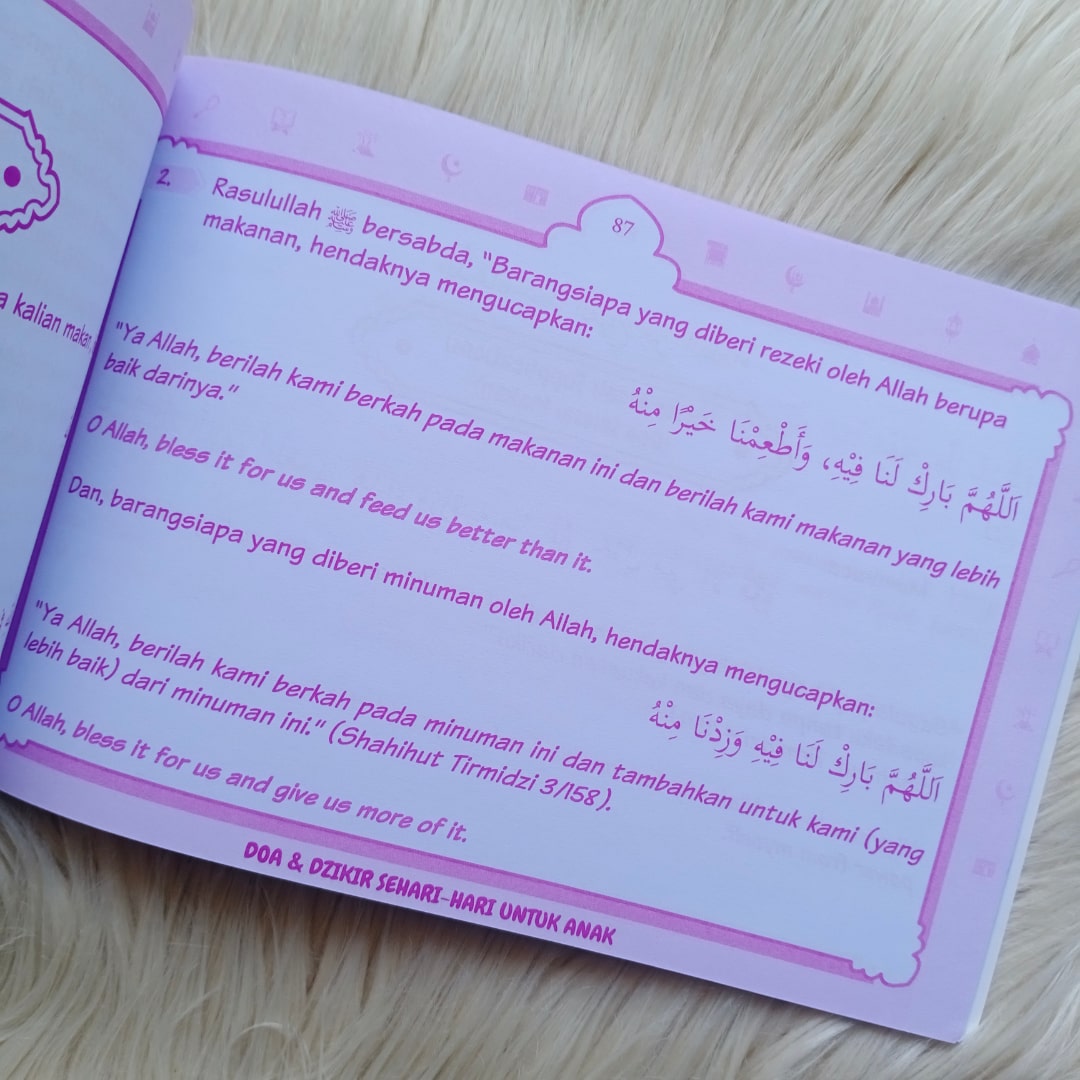 a kalian makan
87
2. Rasulullah ﷺ bersabda, "Barangsiapa yang diberi rezeki oleh Allah berupa
makanan, hendaknya mengucapkan:
اَللَّهُمَّ بَارِكْ لَنَا فِيْهِ، وَأَطْعِمْنَا خَيْرًا مِنْهُ
"Ya Allah, berilah kami berkah pada makanan ini dan berilah kami makanan yang lebih
baik darinya."
O Allah, bless it for us and feed us better than it.
Dan, barangsiapa yang diberi minuman oleh Allah, hendaknya mengucapkan:
اَللَّهُمَّ بَارِكْ لَنَا فِيْهِ وَزِدْنَا مِنْهُ
"Ya Allah, berilah kami berkah pada minuman ini dan tambahkan untuk kami (yang
lebih baik) dari minuman ini." (Shahihut Tirmidzi 3/158).
O Allah, bless it for us and give us more of it.
DOA & DZIKIR SEHARI-HARI UNTUK ANAK